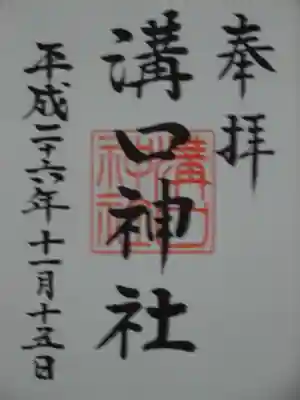 奉拝
溝口神社
溝口神社
平成二十六年十一月十五日